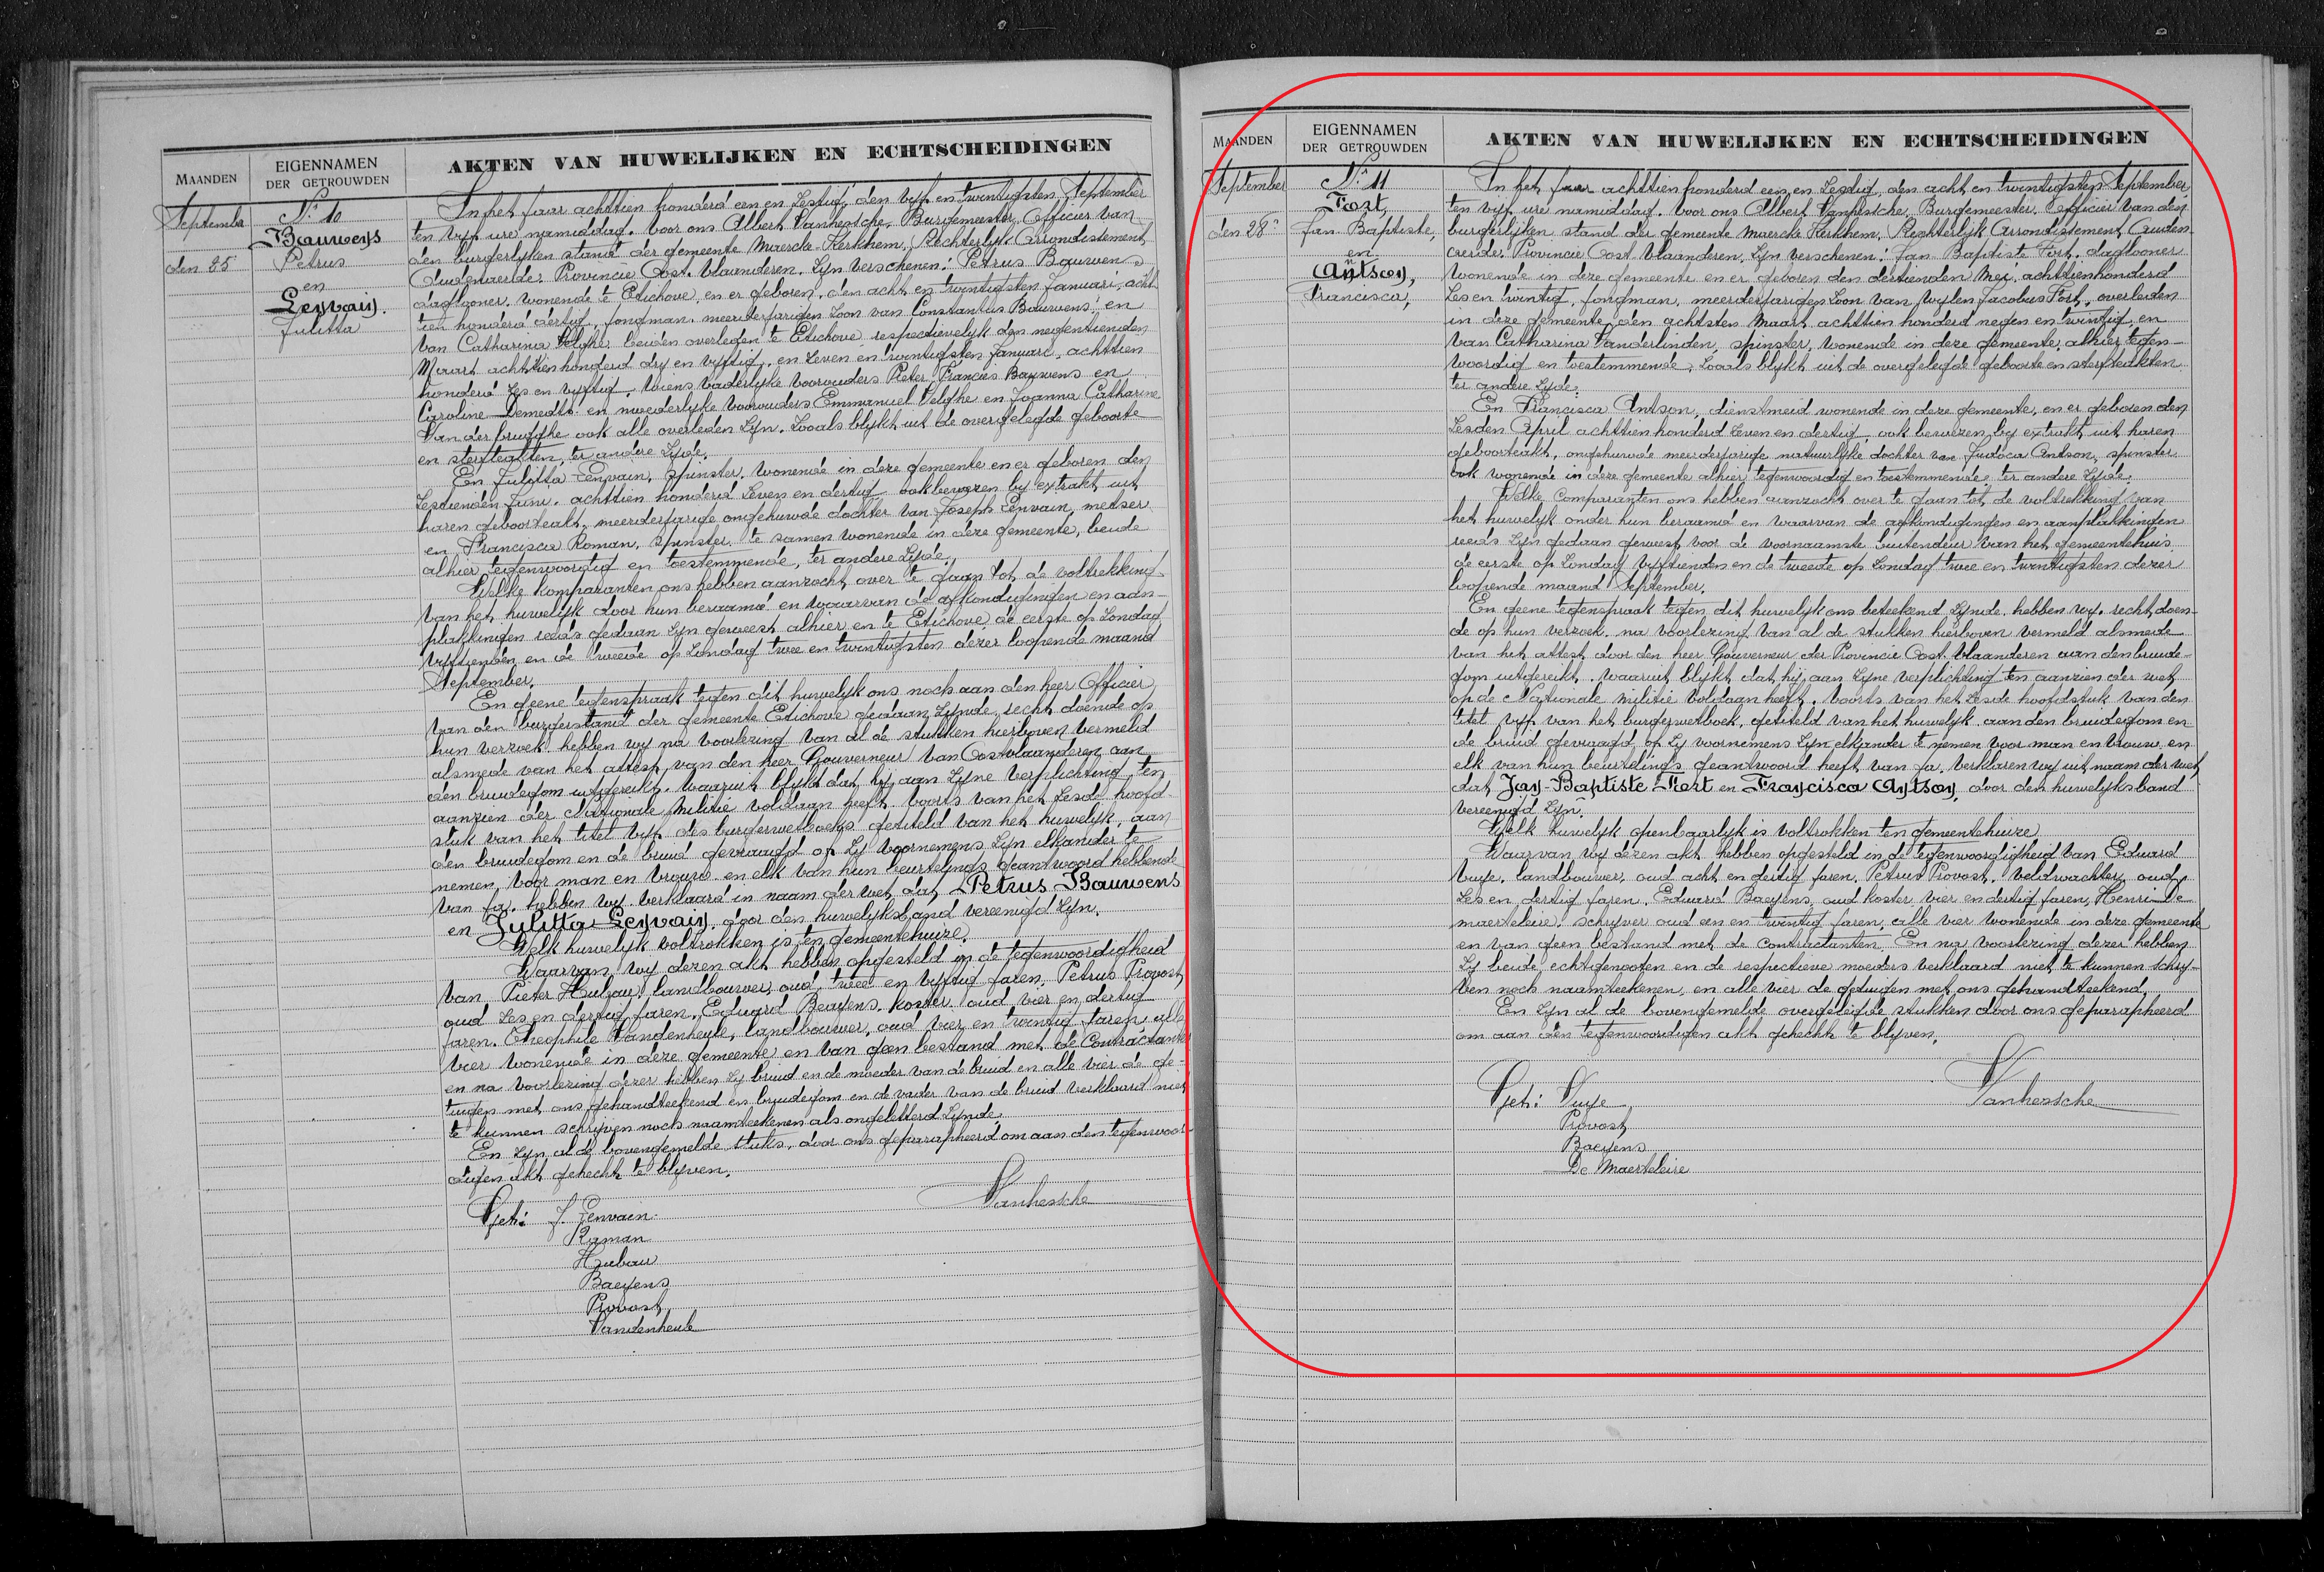 AKTEN VAN HUWELIJKEN EN ECHTSCHEIDINGEN
MAANDEN
EIGENNAMEN
DER GETROUWDEN
September
den 25
N° 10
Bauwens
Petrus
en
Lenvain.
Julitta
In het jaar achttien honderd een en Zestig, den vyf en twintigsten September
ten vyf ure namiddag. Voor ons Albert Vanhessche, Burgemeester, Officier van
den burgerlyken stand der gemeente Maercke Kerkhem, Rechterlyk Arrondistement
Audenaerde. Provincie Oost-Vlaanderen. Zyn verschenen: Petrus Bauwens
daglooner. wonende te Etichove, en er geboren, den acht en twintigsten Januari acht
tien honderd dertig, jongman, meerderjarigen Zoon van Constantus Bauwens, en
van Catharina Velghe, beiden overleden te Etichove, respectievelyk den negentienden
Maart achttienhonderd dry en vyftig, en Zeven en twintigsten Januari, achttien
honderd Zes en vyftig, wiens vaderlyke voorouders Pieter Francies Bauwens en
Caroline Demedts en moederlyke voorouders Emmanuel Velghe en Joanna Catharine
Van der brugghe ook alle overleden Zyn. Zooals blykt uit de overgelegde geboorte
en sterfteakten, ter andere Zyde.
En Julitta Lenvain, Spinster, wonende in deze gemeente en er geboren den
Zestienden Juni, achttien honderd Zeven en dertig, ook bewezen by extrakt uit
haren geboorteakt, meerderjarige ongehuwde dochter van Joseph Lenvain, metser
en Francisca Roman, Spinster, te samen wonende in deze gemeente, beide
alhier tegenwoordig en toestemmende, ter andere Zyde.
Welke komparanten ons hebben aanzocht over te gaan tot de voltrekking
van het huwelyk door hun beraamd en waarvan de afkondigingen en aan-
plakkingen reeds gedaan Zyn geweest alhier en te Etichove, de eerste op Zondag
vyftienden en de tweede op Zondag twee en twintigsten dezer loopende maand
September.
En geene tegenspraak tegen dit huwelyk ons noch aan den heer Officier
van den burgerstand der gemeente Etichove gedaan Zynde, recht doende op
hun verzoek, hebben wy na voorlezing van al de stukken hierboven vermeld
alsmede van het attest van den heer Gouverneur van Oostvlaanderen aan
den bruidegom uitgereikt. Waaruit blykt dat hy aan Zyne verplichting ten
aanzien der Nationale Militie voldaan heeft. Voorts van het Zesde hoofd-
stuk van het titel vyf des burgerwetboeks getiteld van het huwelyk, aan
den bruidegom en de bruid gevraagd op Zy voornemens Zyn elkander te
nemen, voor man en vrouw en elk van hun beurtelings geantwoord hebbende
van ja. hebben wy verklaard in naam der wet, dat Petrus Bauwens
en Julitta Lenvain door den huwelyksband vereenigd Zyn.
Welk huwelyk voltrokken is ten gemeentehuize.
Waarvan wy dezen akt hebben opgesteld in de tegenwoordigheid
van Pieter Hubau, landbouwer, oud twee en vyftig jaren, Petrus Provost,
oud Zes en dertig jaren, Eduard Baeyens, Koster, oud vier en dertig
jaren. Theophile Vandenheule, landbouwer, oud vier en twintig jaren, alle
vier wonende in deze gemeente en van geen bestand met de Contractanten
en na voorlezing dezer hebben Zy bruid en de moeder van de bruid en alle vier de ge-
tuigen met ons gehandteekend en bruidegom en de vader van de bruid verklaard niet
te kunnen schryven noch naamteekenen als ongeletterd Zynde.
En Zyn al de bovengemelde stuks, door ons geparapheerd om aan den tegenwoor-
digen akt gehecht te blyven.
Get: J. Lenvain
Vanhessche
Roman
Hubau
Baeyens
Provost
Vandenheule
AKTEN VAN HUWELIJKEN EN ECHTSCHEIDINGEN
MAANDEN
EIGENNAMEN
DER GETROUWDEN
September
den 28n
N° 11
Fort,
Jan Baptiste,
en
Antson,
Francisca,
In het jaar achttien honderd een en Zestig, den acht en twintigsten September
ten vyf ure namiddag. Voor ons Albert Vanhessche, Burgemeester. Officier van den
burgerlyken stand der gemeente Maercke Kerkhem, Rechterlyk Arrondistement Auden-
aerde. Provincie Oost Vlaanderen. Zyn verschenen: Jan Baptiste Fort, daglooner
wonende in deze gemeente en er geboren den dertienden Mei, achttienhonderd
Zes en twintig, jongman, meerderjarigen Zoon van wylen Jacobus Fort, overleden
in deze gemeente, den achtsten Maart achttien honderd negen en twintig, en
van Catharina Vanderlinden, spinster, wonende in deze gemeente, alhier tegen-
woordig en toestemmende. Zooals blykt uit de overgelegde geboorte en sterfteakten
ter andere Zyde.
En Francisca Antson, dienstmeid wonende in deze gemeente, en er geboren den
Zesden April achttien honderd Zeven en dertig, ook bewezen by extrakt uit haren
geboorteakt, ongehuwde meerderjarige natuurlyke dochter van Judoca Antson, spinster
ook wonende in deze gemeente alhier tegenwoordig en toestemmende, ter andere Zyde.
Welke Comparanten ons hebben aanzocht over te gaan tot de voltrekking van
het huwelyk onder hun beraamd en waarvan de afkondigingen en aanplakkingen
reeds Zyn gedaan geweest voor de voornaamste buitendeur van het gemeentehuis.
de eerste op Zondag vyftienden en de tweede op Zondag twee en twintigsten dezer
loopende maand September.
En geene tegenspraak tegen dit huwelyk ons beteekend Zynde, hebben wy, recht doen-
de op hun verzoek, na voorlezing van al de stukken hierboven vermeld alsmede
van het attest door den heer Gouverneur der Provincie Oost Vlaanderen aan den bruide-
gom uitgereikt. Waaruit blykt dat hij aan Zyne verplichting ten aanzien der wet
op de Nationale militie voldaan heeft. Voorts van het Zesde hoofdstuk van den
titel vyf van het burgerwetboek, getiteld van het huwelyk, aan den bruidegom en
de bruid gevraagd op Zy voornemens Zyn elkander te nemen voor man en vrouw, en
elk van hun beurtelings geantwoord heeft van ja. Verklaren wy uit naam der wet,
dat Jan-Baptiste Fort en Francisca Antson, door den huwelyksband
vereenigd Zyn.
Welk huwelyk openbaarlyk is voltrokken ten gemeentehuize.
Waarvan wy dezen akt hebben opgesteld in de tegenwoordigheid van Eduard
Vuye, landbouwer, oud acht en dertig jaren, Petrus Provost, veldwachter, oud
Zes en dertig jaren, Eduard Baeyens, oud koster vier en dertig jaren, Henri De
maerteleire, schryver oud een en twintig jaren, alle vier wonende in deze gemeente
en van geen bestand met de contractanten. En na voorlezing dezer hebben
Zy beide echtgenooten en de respectieve moeders verklaard niet te kunnen schry-
ven noch naamteekenen, en alle vier de getuigen met ons gehandteekend.
En Zyn al de bovengemelde overgelegde stukken door ons geparapheerd
om aan den tegenwoordigen akt gehecht te blyven.
Get: Vuye
Vanhessche
Provost
Baeyens
De Maerteleire